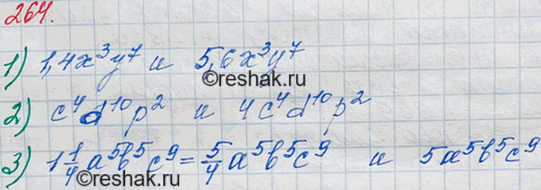 264.
1) 1,4x³y⁷ и 5,6x³y⁷
©reshak.ru
2) c⁴d¹⁰p² и 4c⁴d¹⁰p²
3) 1 1/4 a⁵b⁵c⁹ = 5/4 a⁵b⁵c⁹ и 5a⁵b⁵c⁹
©reshak.ru